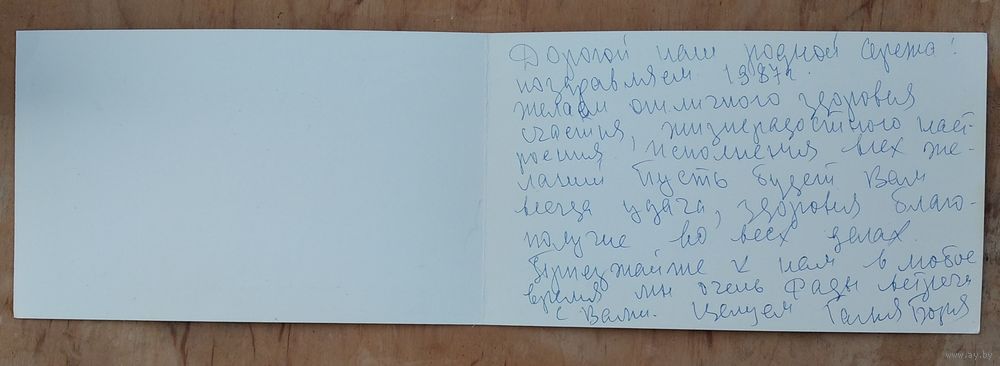 Дорогой наш родной Сережа!
поздравляем 1987г.
желаем отличного здоровья
счастия, жизнерадостного наст-
роения, исполнения всех же-
ланий Пусть будет Вам
всегда удача, здоровия благо-
получие во всех делах.
Приезжайте к нам в любое
время мы очень рады встрече
с Вами. Целуем Галия Боря
www.ay.by